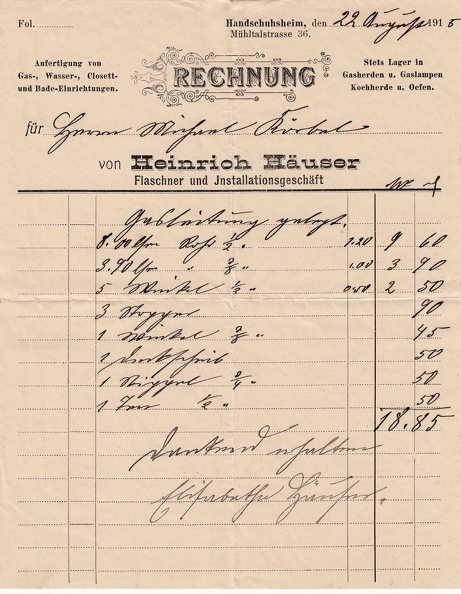 Fol.
Handschuhsheim, den 22 August 1915
Mühltalstrasse 36.
Anfertigung von
Gas-, Wasser-, Closett-
und Bade-Einrichtungen.
RECHNUNG
Stets Lager in
Gasherden u. Gaslampen
Kochherde u. Oefen.
für Herrn Michael Körbel
von Heinrich Häuser
Flaschner und Jnstallationsgeschäft
Gasleitung gelegt.
8.00 Rohr 1/2 " 1.20 9 60
3.90 " 3/8 " 1.00 3 90
5 Winkel 1/2 " 0.50 2 50
3 Stoppen 90
1 Winkel 3/8 " 45
1 Deckscheib 50
1 Nippel 3/4 " 50
1 1/2 " 50
18.85
Dankend erhalten
Elisabethe Häuser.